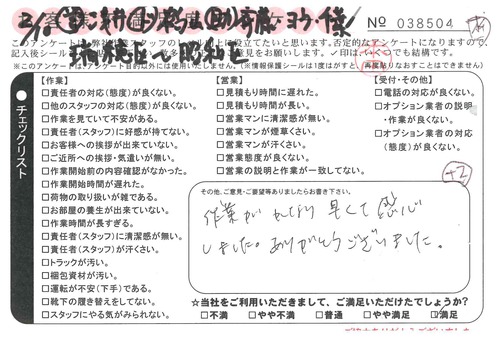 No 038504
このアンケートは
記入後シール
見をお願いします。✓印はいくつでも結構です。
※このアンケートは
(※情報保護シールは1度はがすと、再度貼りなおすことはできません)
チェックリスト
【作業】
□責任者の対応(態度)が良くない。
□他のスタッフの対応(態度)が良くない。
□作業を見ていて不安がある。
□責任者(スタッフ)に好感が持てない。
□お客様への挨拶が出来ていない。
□ご近所への挨拶・気遣いが無い。
□作業開始前の内容確認がなかった。
□作業開始時間が遅れた。
□荷物の取り扱いが雑である。
□お部屋の養生が出来ていない。
□作業時間が長すぎる。
□責任者(スタッフ)に清潔感が無い。
□責任者(スタッフ)が汗くさい。
□トラックが汚い。
□梱包資材が汚い。
□運転が不安(下手)である。
□靴下の履き替えをしてない。
□スタッフにやる気がみられない。
【営業】
□見積もり時間に遅れた。
□見積もり時間が長い。
□営業マンに清潔感が無い。
□営業マンが煙草くさい。
□営業マンが汗くさい。
□営業態度が良くない。
□営業の説明と作業が一致してない。
【受付・その他】
□電話の対応が良くない。
□オプション業者の説明
・作業が良くない。
□オプション業者の対応
(態度)が良くない。
+2
その他、ご意見・ご要望等ありましたらお書き下さい。
作業が かなり 早くて 感心
しました。ありがとうございました。
☆当社をご利用いただきまして、ご満足いただけたでしょうか?
□不満 □やや不満 □普通 □やや満足 ☑満足